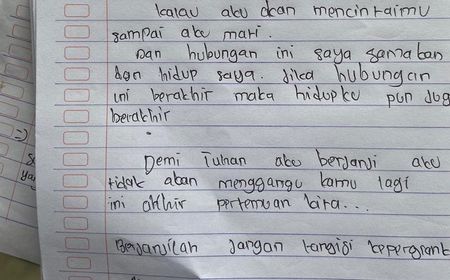 kalau aku akan mencintaimu
sampai aku mati.
Dan hubungan ini saya samakan
dgn hidup saya. jika hubungan
ini berakhir maka hidupku pun jug
berakhir
Demi Tuhan aku berjanji aku
tidak akan menggangu kamu lagi
ini akhir pertemuan kita...
Berjanjilah jangan tangisi kepergiank